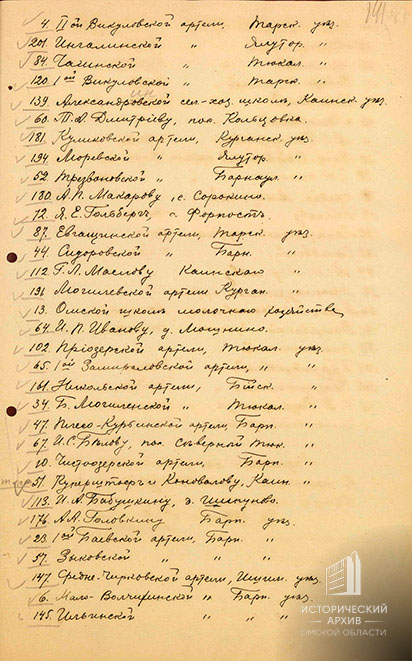 4. IIой Викуловской артели, Тарск. уѣз.
201. Ингалинской " Ялутор. "
84. " Тюкал. "
120. 1ой Викуловской " Тарск. "
139. Александровской сел-хоз. школѣ, Каинск. уѣз.
60. Дмитріеву, пос. Кольцовка.
181. Куликовской артели, Курганск. уѣз.
194. Моревской " Ялутор. "
52. Трезвановской " Барнаул. "
180. А.П. Макарову, с. Сорокино.
72. Я.Е. Гольбергъ, с. Форпостъ.
87. Евгащинской артели, Тарск. уѣз.
44. Сидоровской " Барн. "
112. Г.Л. Маслову Каинскаго "
191. Могилевской артели Курган. "
13. Омской школѣ молочнаго хозяйства
64. И.П. Иванову, д. Мошнино.
102. Пріозерской артели, Тюкал. уѣз.
65. 1ой артели, " "
161. Никольской артели, Бійск. "
34. Б. Могиленской " Тюкал. "
47. артели, Барн. "
67. И.С. Бѣлову, пос. Сѣверный Тюк. "
10. Чистоозерской артели, Барн. "
51. и Коновалову, Каин. "
113. И.А. Бабушкину, д. Шипуново.
176. А.А. Головкину Барн. уѣз.
23. 1ой Баевской артели, Барн. "
57. Зыковской " " "
147. Средне-Чирковской артели, Ишим. уѣз.
6. Мало-Волчихинской " Барн. уѣз.
145. Ильинской " " "
ИСТОРИЧЕСКИЙ
АРХИВ
ОМСКОЙ ОБЛАСТИ